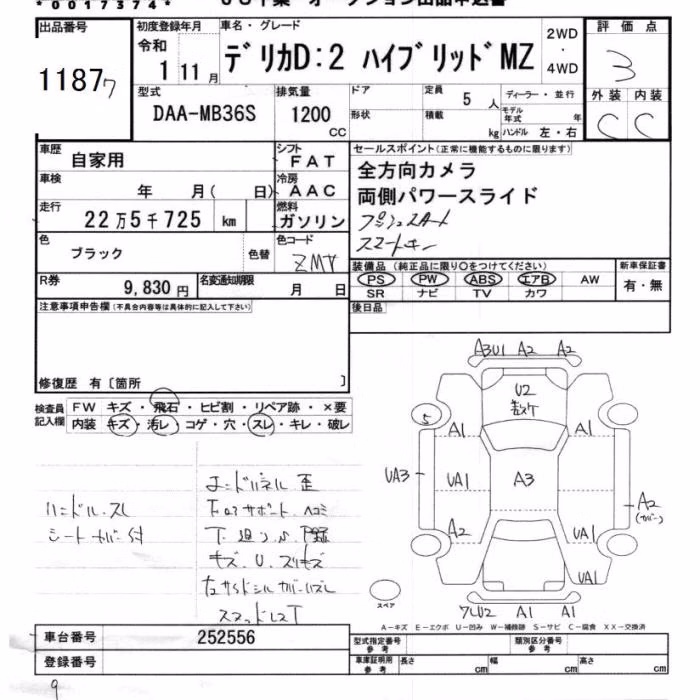 *0017374*
出品番号
11877
初度登録年月
令和
1 11月
車名・グレード
デリカD:2 ハイブリッドMZ
2WD
・
4WD
評価点
3
外装 内装
C C
型式
DAA-MB36S
排気量
1200
CC
ドア
形状
定員
5人
積載
kg
ディーラー・並行
モデル年式 年
ハンドル 左・右
車歴
自家用
シフト
FAT
車検
年 月( 日)
冷房
AAC
走行
22万5千725 km
燃料
ガソリン
色
ブラック
色替
色コード
R券
9,830円
名変通知期限
月 日
セールスポイント(正常に機能するものに限ります)
全方向カメラ
両側パワースライド
プッシュスタート
スマートキー
装備品(純正品に限り○をつけてください)
PS PW ABS エアB AW
SR ナビ TV カワ
新車保証書
有・無
後日品
注意事項申告欄(不具合内容等は具体的に記入して下さい)
修復歴 有〔箇所 〕
検査員記入欄
FW キズ・飛石・ヒビ割・リペア跡・×要
内装 キズ・汚レ・コゲ・穴・スレ・キレ・破レ
ハンドル.スレ
シートカバー付
歪
下回り
キズ.U.スリキズ
A3U1 A2 A2
U2
5
A1 A1
UA3
UA1
A3
A2
(カバー)
A2
UA1
UA1
スペア
U2 A1 A1
A-キズ E-エクボ U-凹み W-補修跡 S-サビ C-腐食 XX-交換済
車台番号
252556
登録番号
型式指定番号
参考
類別区分番号
参考
車庫証明用
参考
長さ cm
幅 cm
高さ cm
9